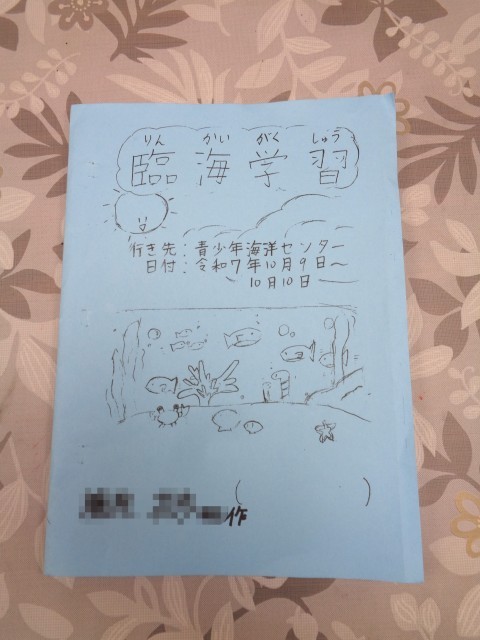 りん かい がく しゅう
臨海学習
行き先:青少年海洋センター
日付:令和7年10月9日～
10月10日
( )
作